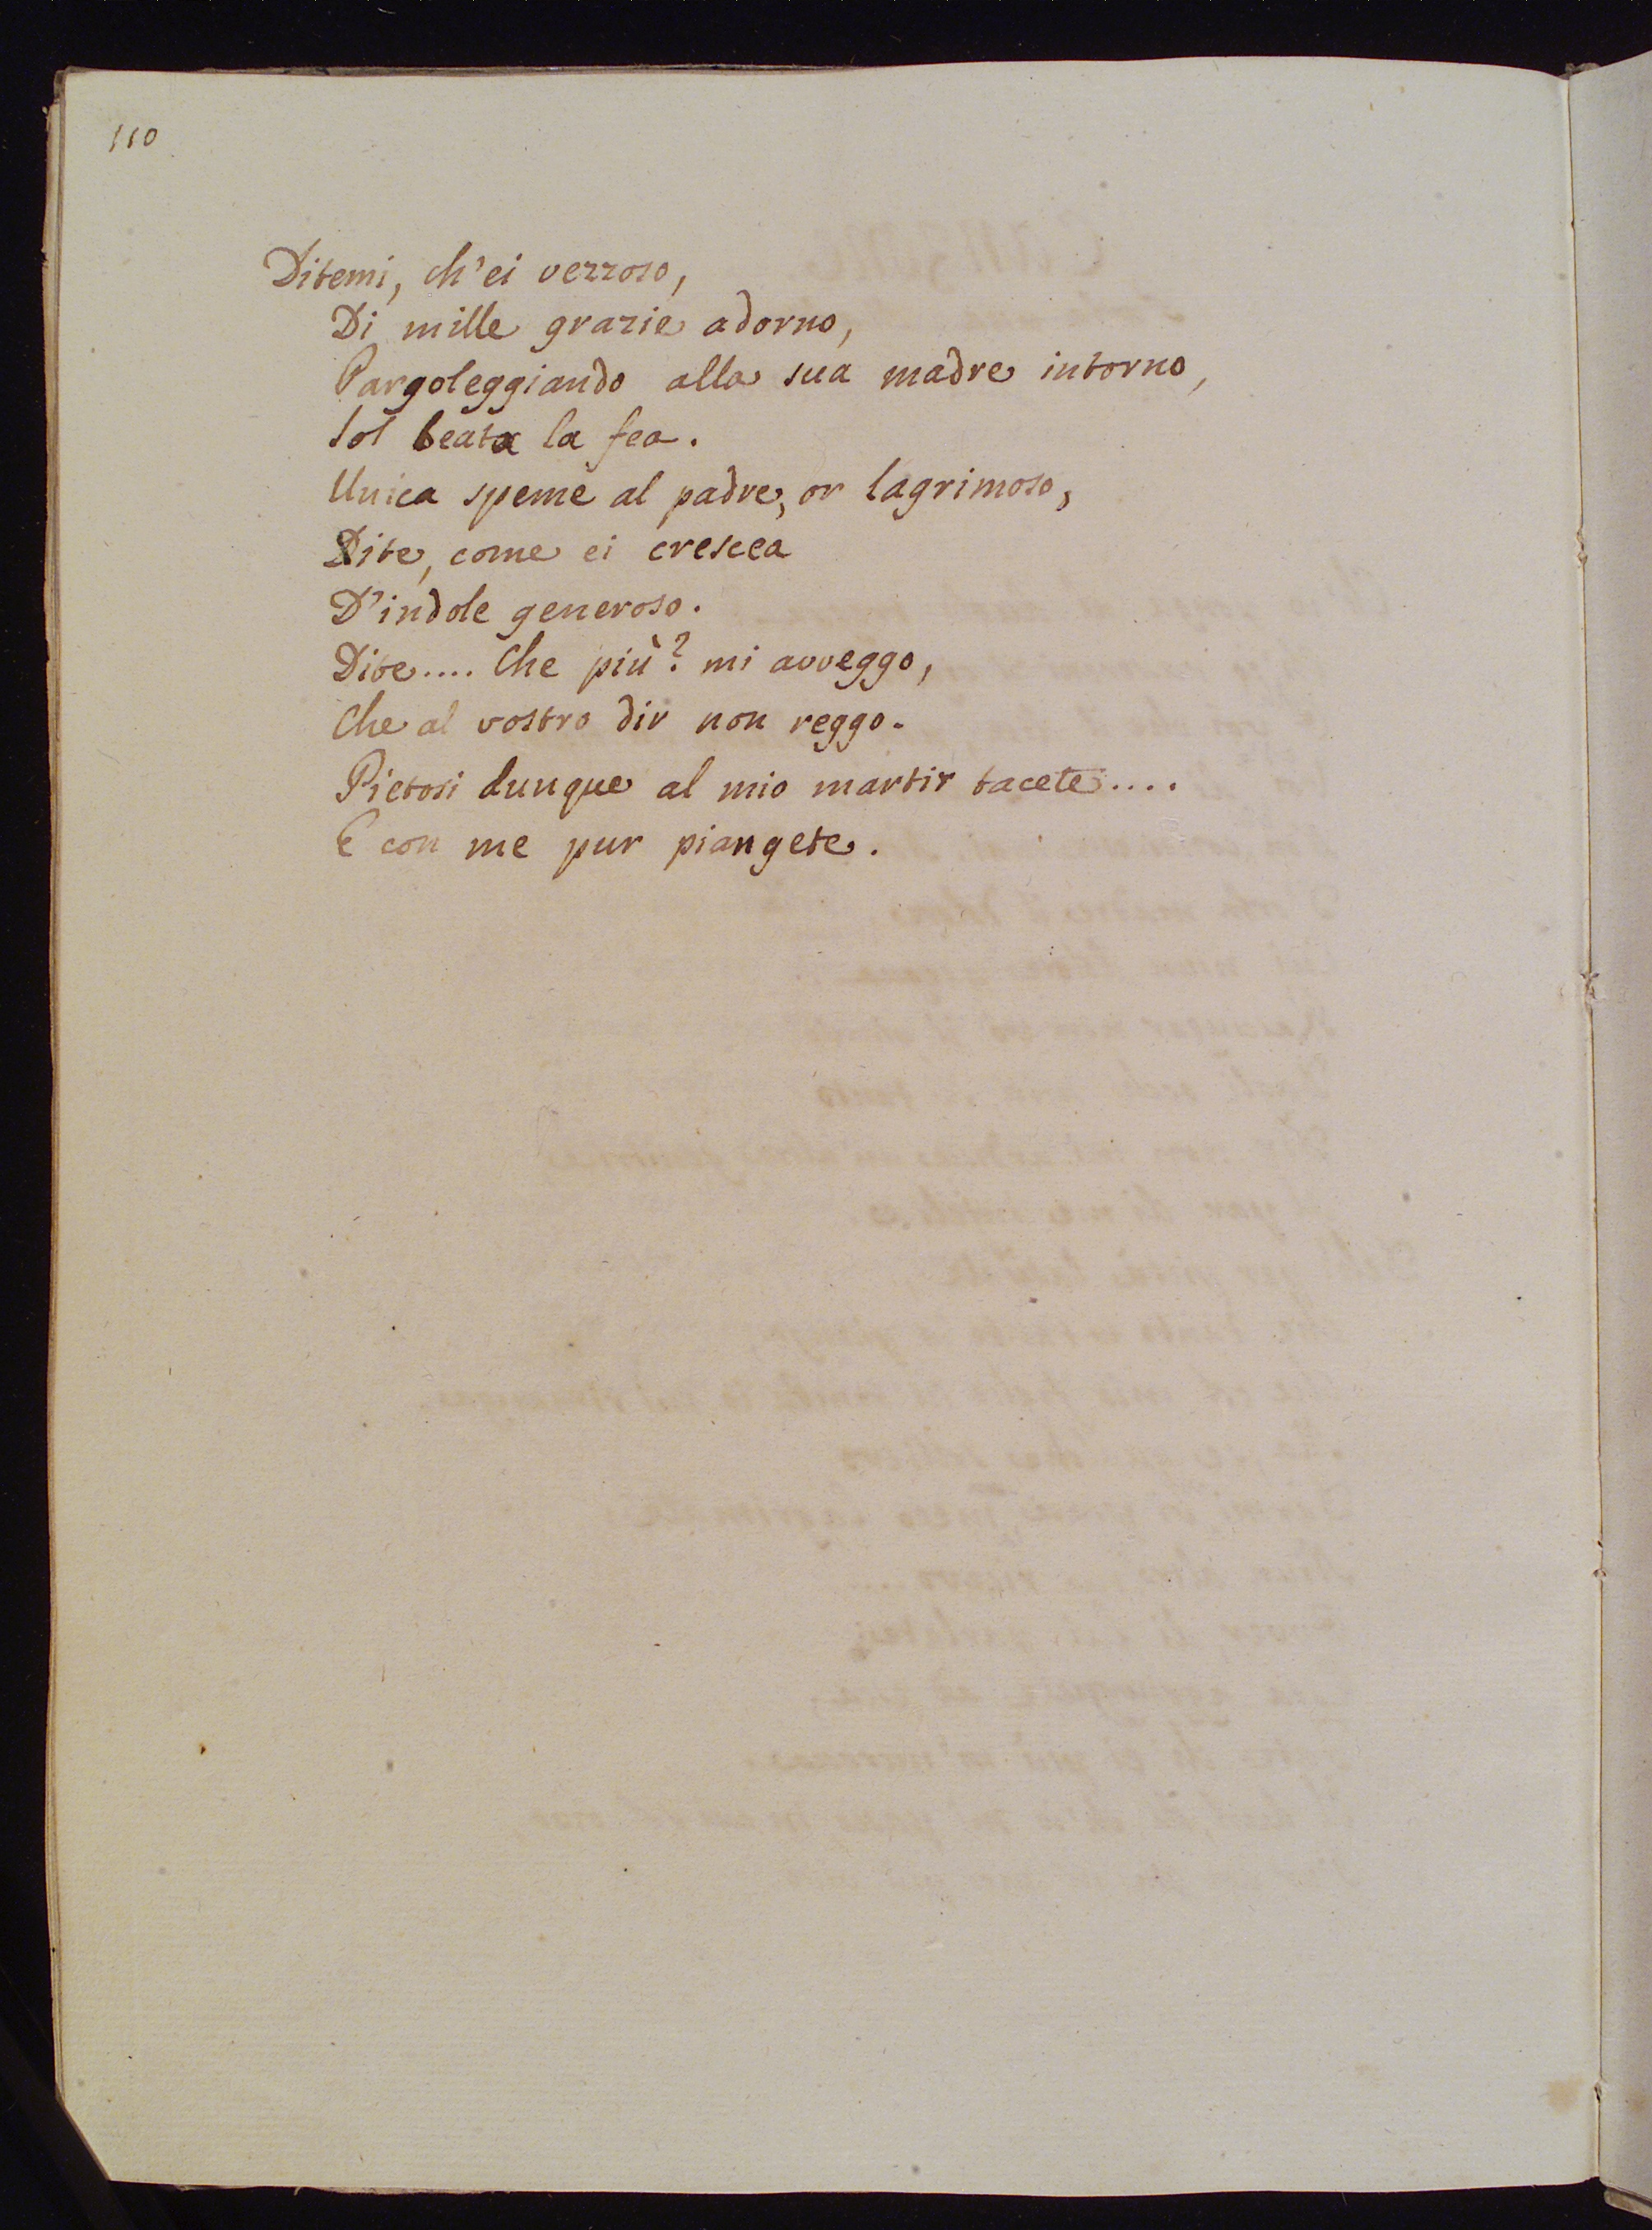 110
Ditemi, ch'ei vezzoso,
Di mille grazie adorno,
Pargoleggiando alla sua madre intorno,
Sol beata la fea.
Unica speme al padre, or lagrimoso,
Dite, come ei crescea
D'indole generoso.
Dite.... Che più? mi avveggo,
Che al vostro dir non reggo.
Pietosi dunque al mio martir tacete....
E con me pur piangete.